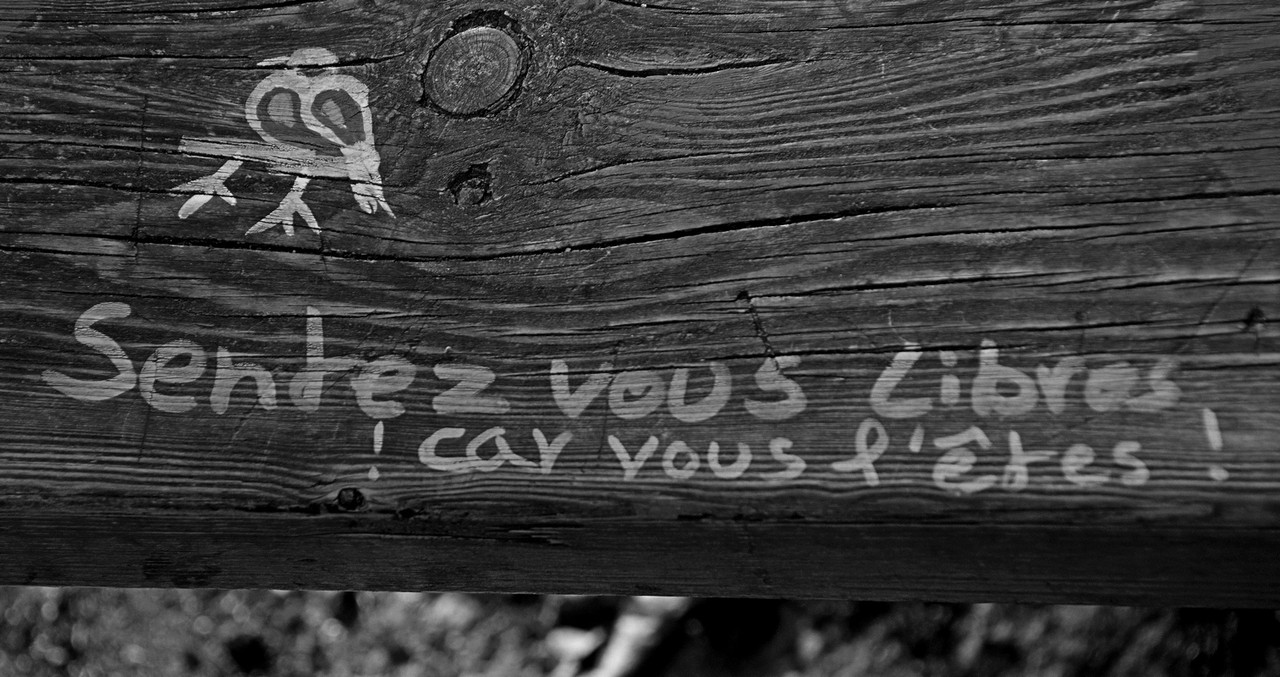 Sentez vous Libres
! car vous l'êtes !